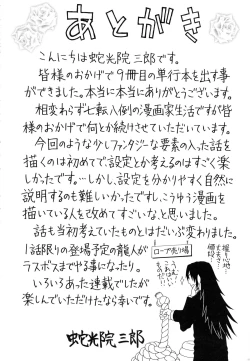 あとがき
こんにちは蛇光院三郎です。
皆様のおかげで9冊目の単行本を出す事
ができました。本当に本当にありがとうございます。
相変わらず七転八倒の漫画家生活ですが皆
様のおかげで何とか続けさせていただいています。
今回のような少しファンタジーな要素の入った話を
描くのは初めてで、設定とか考えるのはすごく楽
しかったです。…しかし、設定を分かりやすく自然に
説明するのも難しいかったですし、こうゆう漫画を
描いている人を改めてすごいなと思いました。
話も当初考えていたものとはだいぶ変わりました。
1話限りの登場予定の龍人が
ラスボスまでやる事になったり。
いろいろあった連載でしたが
楽しんでいただけたなら幸いです。
蛇光院三郎
ロープ売り場